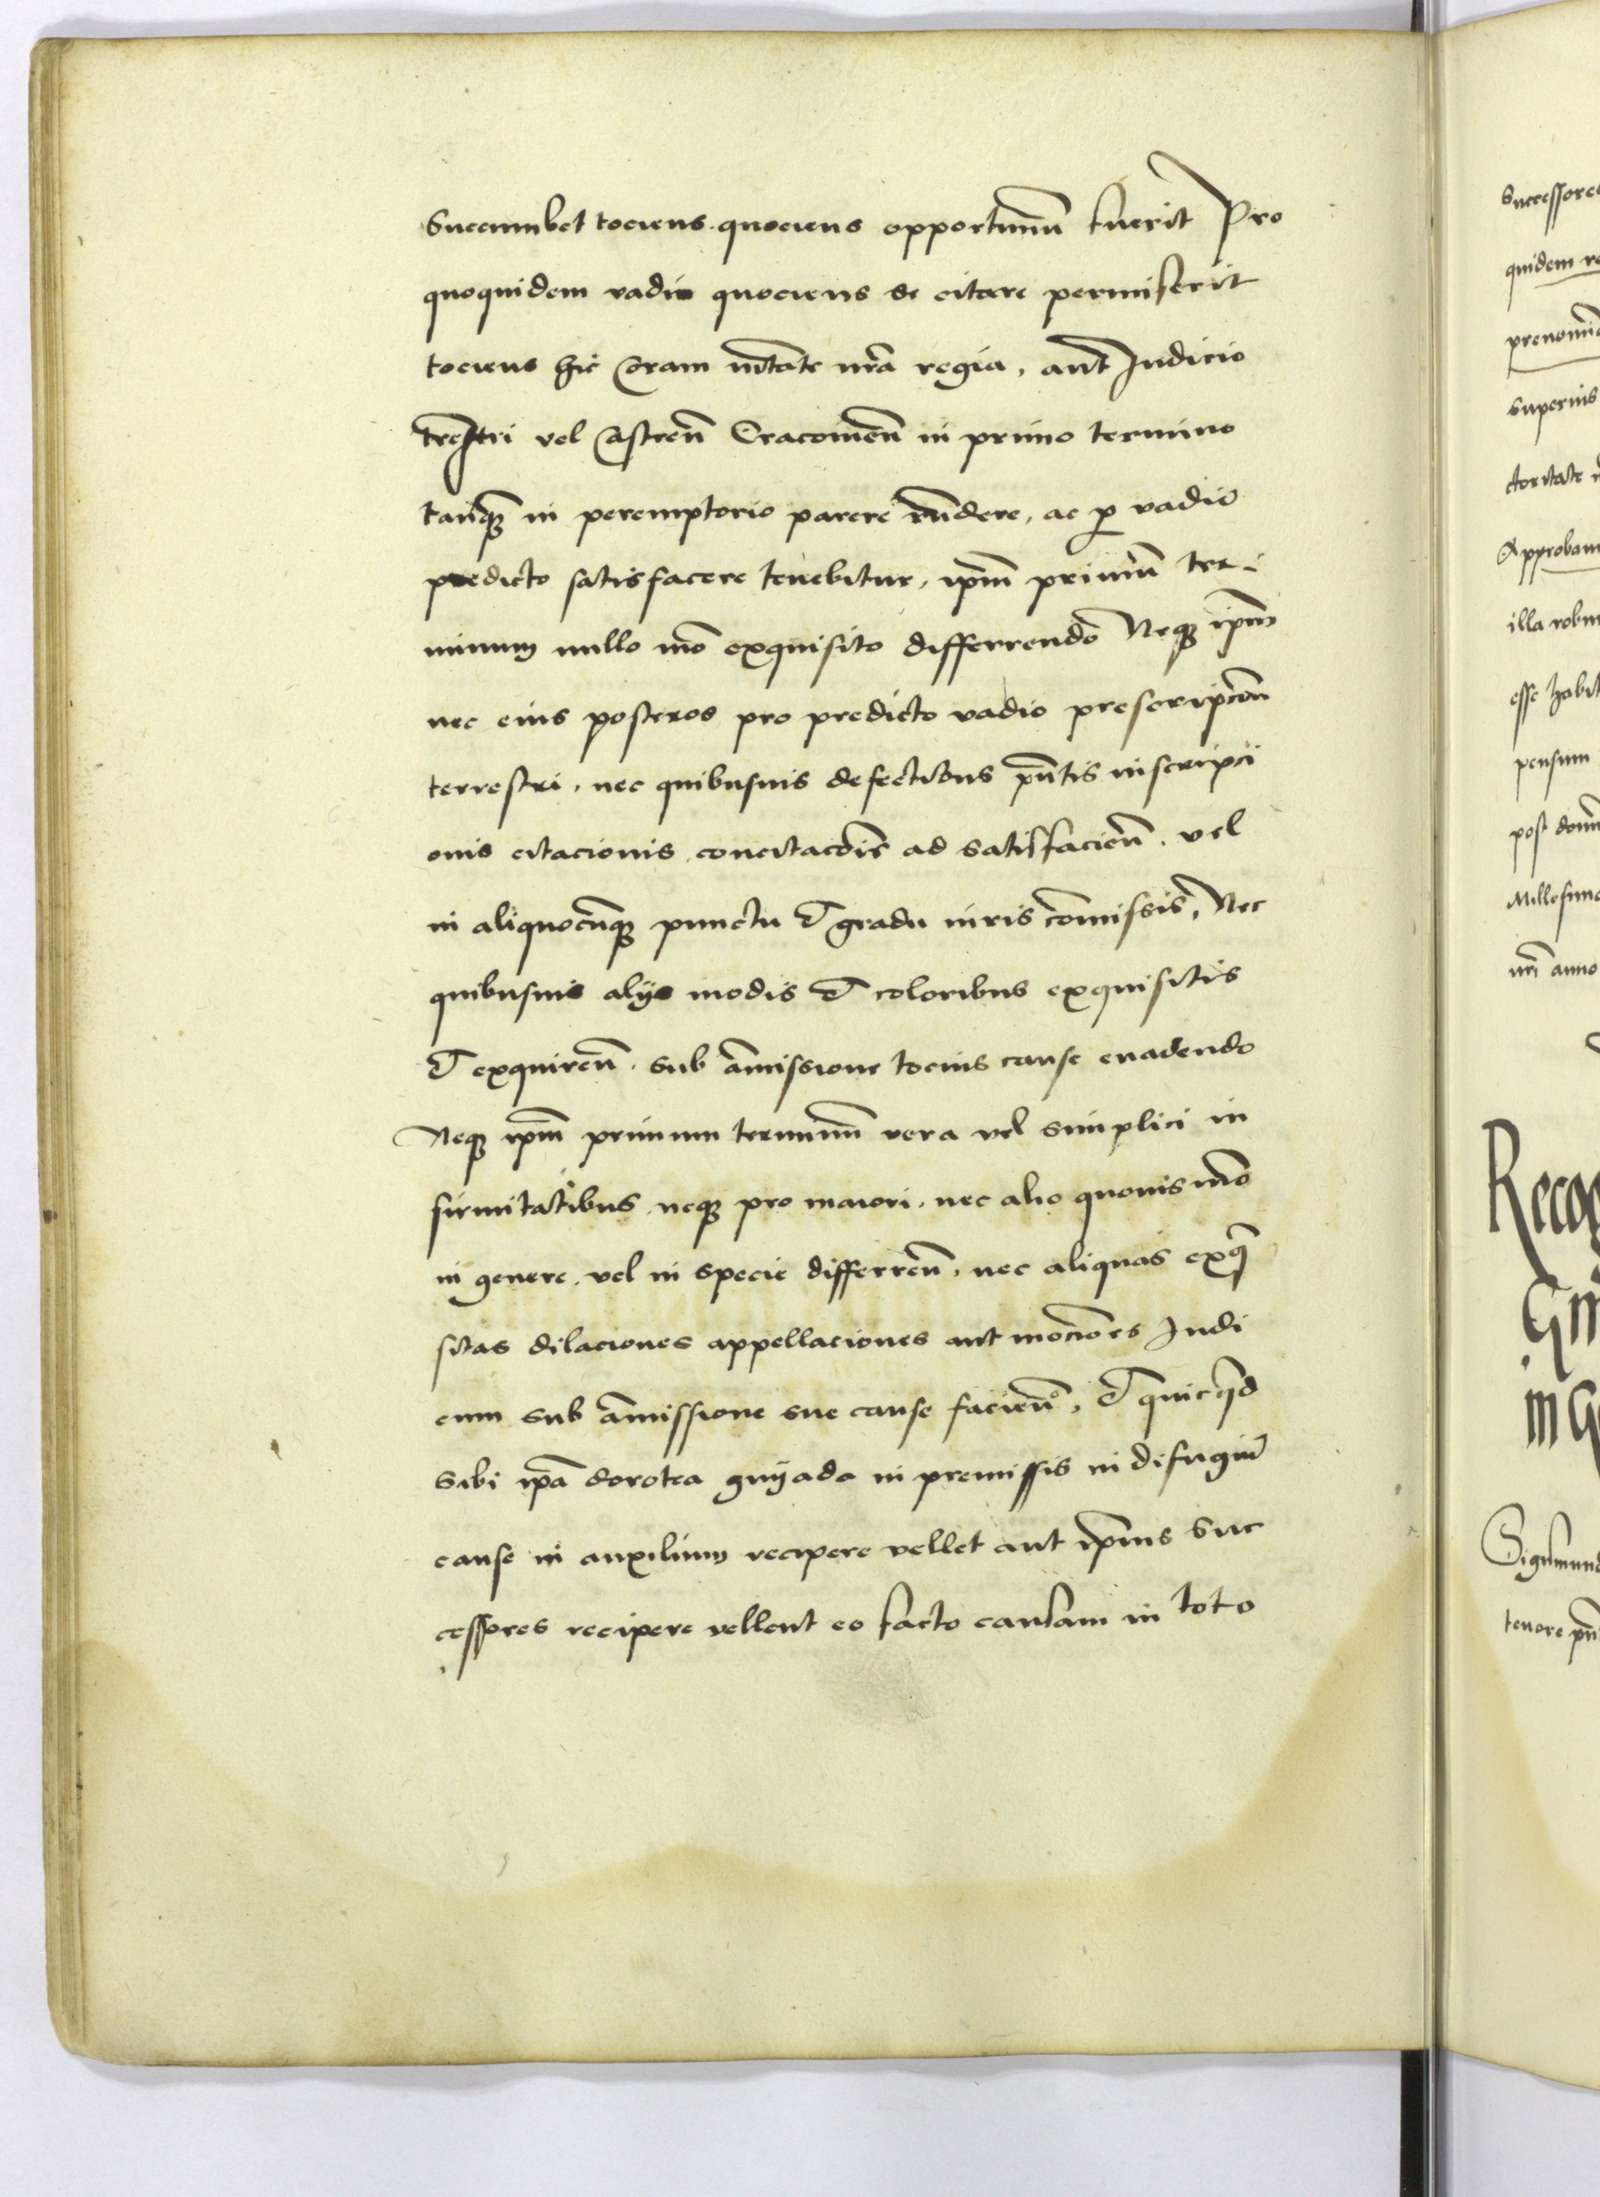 Succumbet tociens quociens opportunũ fuerit Pro
quoquidem vadio quociens se citare permiserit
tociens hic Coram mtate nr̃a regia, aut Iudicio
trestri vel Castreñ Cracovieñ in primo termino
tanq̃ in peremptorio parere rñdere, ac ꝓ vadio
predicto satisfacere tenebitur, ip̃m primũ ter-
minum nullo mõ exquisito differrendo Neqꝫ ip̃m
nec eius posteros pro predicto vadio prescripcõn
terrestri, nec quibusuis defectibus pñtis inscripci
onis citacionis concitacõis ad satisfacieñ, vel
in aliquocũqꝫ punctu et gradu iuris cõmissis, Nec
quibusuis alijs modis et coloribus exquisitis
et exquireñ, sub ãmissione tocius cause euadendo
Neqꝫ ip̃m primum terminũ vera vel simplici in
firmitatibus, neqꝫ pro maiori, nec alio quouis mõ
in genere, vel in specie differreñ, nec aliquas exq̃
sitas dilaciones appellaciones aut mocões Iudi
cum sub ãmissione sue cause facieñ, et quicq̃d
sibi ip̃a dorotea gnijada in premissis in difugiũ
cause in auxilium recipere vellet aut ip̃ius suc
cessores recipere vellent eo facto causam in toto
Successores
quidem
superius
Approbam
illa robur
esse
pensum
post
Millesimo
nr̃i anno
Recog
in
Sigismund
tenore